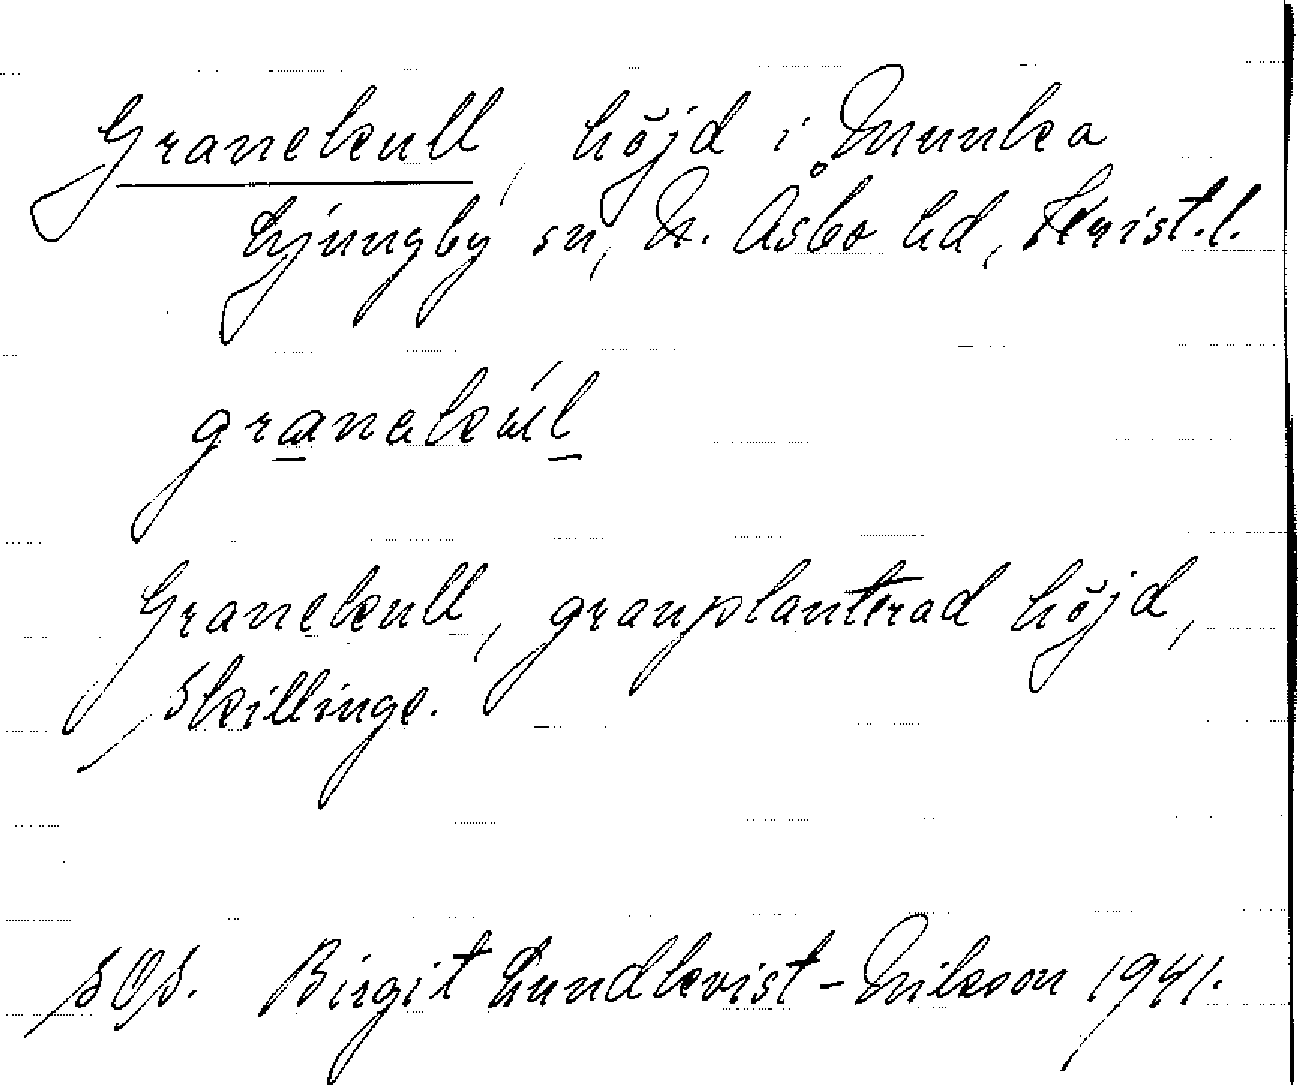 Granekull, höjd i Munka
Ljungby sn, N. Åsbo hd, Krist.l.
granekúl
Granekull, granplanterad höjd,
Skillinge.
SOS. Birgit Lundkvist-Nilsson 1941.